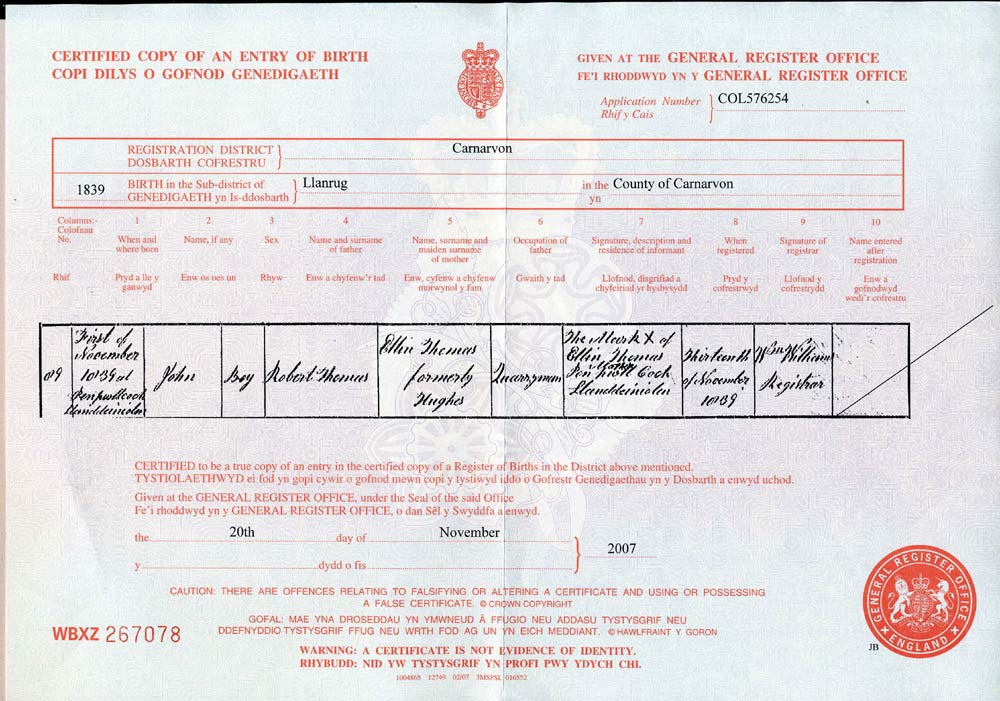 CERTIFIED COPY OF AN ENTRY OF BIRTH
COPI DILYS O GOFNOD GENEDIGAETH
GIVEN AT THE GENERAL REGISTER OFFICE
FE'I RHODDWYD YN Y GENERAL REGISTER OFFICE
Application Number
Rhif y Cais
COL576254
REGISTRATION DISTRICT
DOSBARTH COFRESTRU
Carnarvon
1839
BIRTH in the Sub-district of
GENEDIGAETH yn Is-ddosbarth
Llanrug
in the
yn
County of Carnarvon
Columns:-
Colofnau
No.
Rhif
1
When and
where born
Pryd a lle y
ganwyd
2
Name, if any
Enw os oes un
3
Sex
Rhyw
4
Name and surname
of father
Enw a chyfenw'r tad
5
Name, surname and
maiden surname
of mother
Enw, cyfenw a chyfenw
morwynol y fam
6
Occupation of
father
Gwaith y tad
7
Signature, description and
residence of informant
Llofnod, disgrifiad a
chyfeiriad yr hysbysydd
8
When
registered
Pryd y
cofrestrwyd
9
Signature of
registrar
Llofnod y
cofrestrydd
10
Name entered
after
registration
Enw a
gofnodwyd
wedi'r cofrestru
First of
November
1839 at
Penpwllcoch
Llanddeiniolen
John
Boy
Robert Thomas
Ellin Thomas
formerly
Hughes
Quarryman
The Mark X of
Ellin Thomas
Mother
Penpwll Coch
Llanddeiniolen
Thirteenth
of November
1839
Williams
Registrar
CERTIFIED to be a true copy of an entry in the certified copy of a Register of Births in the District above mentioned.
TYSTIOLAETHWYD ei fod yn gopi cywir o gofnod mewn copi y tystiwyd iddo o Gofrestr Genedigaethau yn y Dosbarth a enwyd uchod.
Given at the GENERAL REGISTER OFFICE, under the Seal of the said Office
Fe'i rhoddwyd yn y GENERAL REGISTER OFFICE, o dan Sêl y Swyddfa a enwyd.
the 20th day of November
2007
y dydd o fis
CAUTION: THERE ARE OFFENCES RELATING TO FALSIFYING OR ALTERING A CERTIFICATE AND USING OR POSSESSING
A FALSE CERTIFICATE. © CROWN COPYRIGHT
GOFAL: MAE YNA DROSEDDAU YN YMWNEUD Â FFUGIO NEU ADDASU TYSTYSGRIF NEU
DDEFNYDDIO TYSTYSGRIF FFUG NEU WRTH FOD AG UN YN EICH MEDDIANT. © HAWLFRAINT Y GORON
WBXZ 267078
WARNING: A CERTIFICATE IS NOT EVIDENCE OF IDENTITY.
RHYBUDD: NID YW TYSTYSGRIF YN PROFI PWY YDYCH CHI.
1004865 12749 02/07 3MSPSL 016552
GENERAL REGISTER OFFICE
ENGLAND
JB